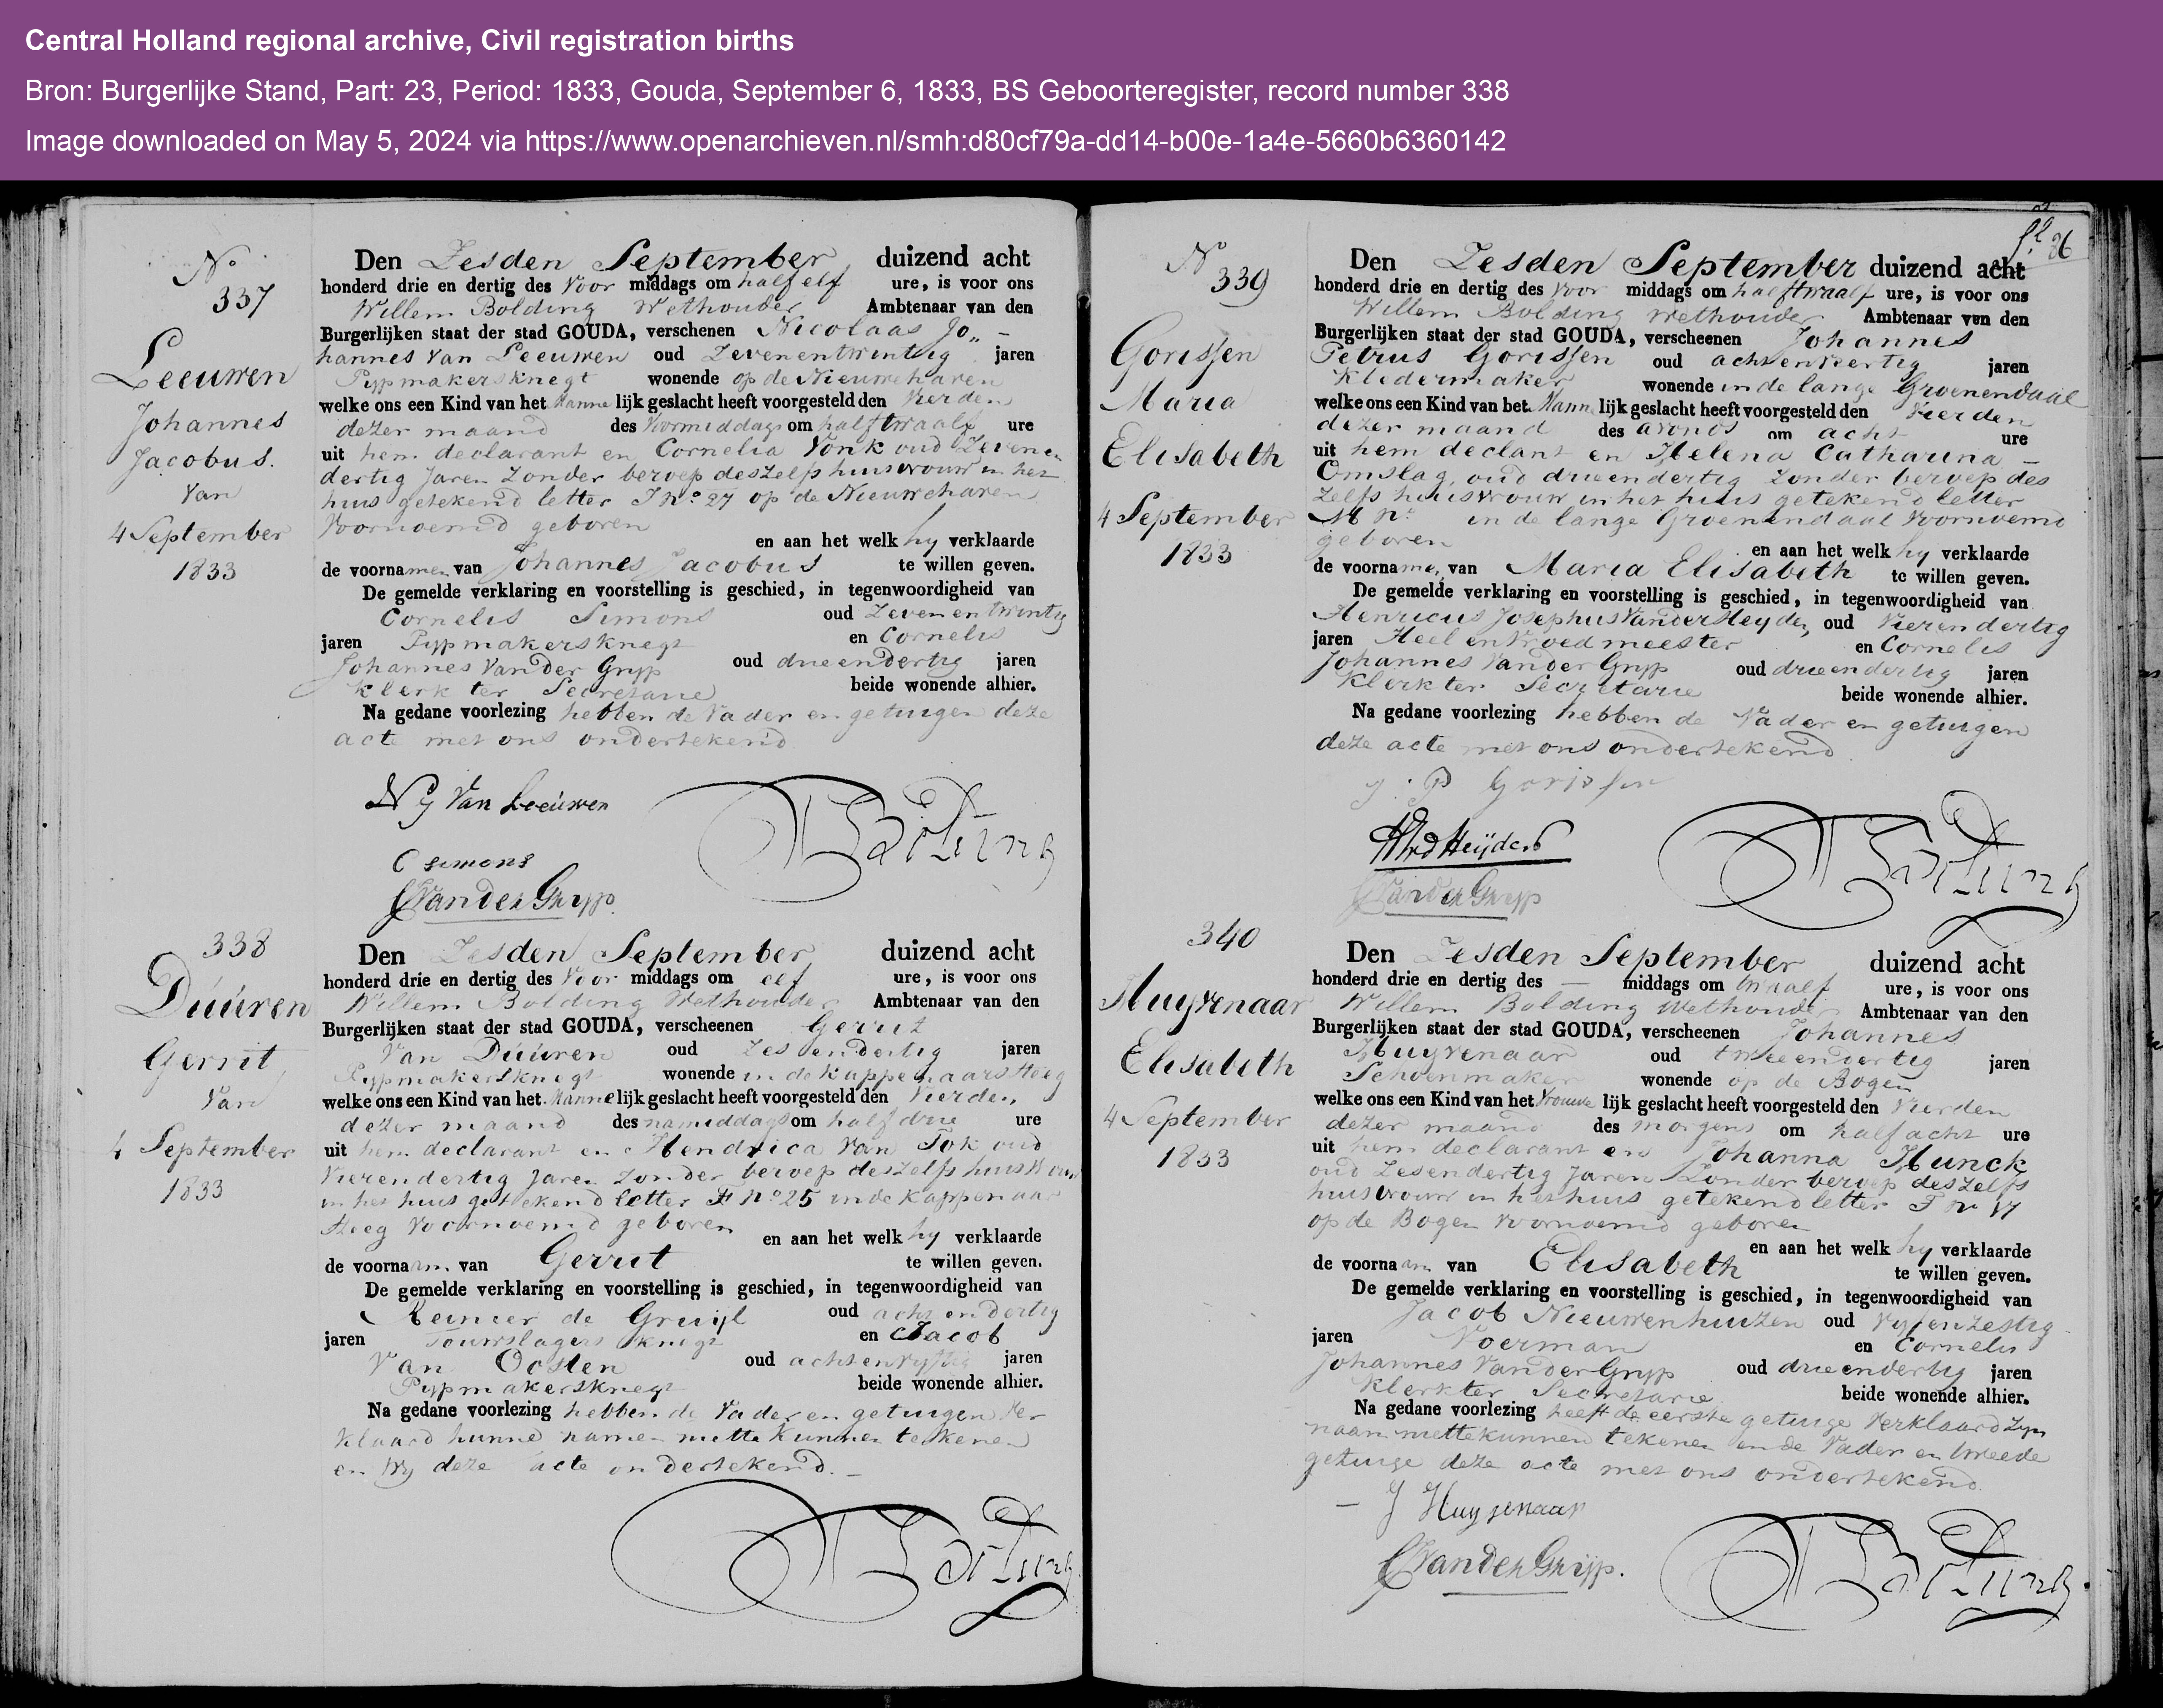 Central Holland regional archive, Civil registration births
Bron: Burgerlijke Stand, Part: 23, Period: 1833, Gouda, September 6, 1833, BS Geboorteregister, record number 338
Image downloaded on May 5, 2024 via https://www.openarchieven.nl/smh:d80cf79a-dd14-b00e-1a4e-5660b6360142
No
337
Leeuwen
Johannes
Jacobus.
Van
4 September
1833
Den Zesden September duizend acht
honderd drie en dertig des Voor middags om half elf ure, is voor ons
Willem Bolding Wethouder Ambtenaar van den
Burgerlijken staat der stad GOUDA, verschenen Nicolaas Jo„
hannes Van Leeuwen oud Zevenentwintig jaren
Pypmakersknegt wonende op de Nieuwehaven
welke ons een Kind van het Manne lijk geslacht heeft voorgesteld den Vierden
dezer maand des Voormiddags om half twaalf ure
uit hem declarant en Cornelia Vonk oud Zevenen
dertig Jaren Zonder beroep deszelfs huisvrouw in het
huis getekend letter I No 27 op de Nieuwehaven
Voornoemd geboren
en aan het welk hy verklaarde
de voornamen van Johannes Jacobus te willen geven.
De gemelde verklaring en voorstelling is geschied, in tegenwoordigheid van
Cornelis Simons oud Zevenentwintig
jaren Pypmakersknegt en Cornelis
Johannes Van der Gryp oud drieendertig jaren
Klerk ter Secretarie beide wonende alhier.
Na gedane voorlezing hebben de Vader en getuigen deze
acte met ons ondertekend
N J Van Leeuwen
C simons
CJ Van der Gryp
W Bolding
338
Düüren
Gerrit
Van
4 September
1833
Den Zesden September duizend acht
honderd drie en dertig des Voor middags om elf ure, is voor ons
Willem Bolding Wethouder Ambtenaar van den
Burgerlijken staat der stad GOUDA, verscheenen Gerrit
Van Düüren oud Zesendertig jaren
Pypmakersknegt wonende in de Kappenaarsteeg
welke ons een Kind van het Manne lijk geslacht heeft voorgesteld den Vierden
dezer maand des namiddags om half drie ure
uit hem declarant en Hendrica Van Tok oud
Vierendertig Jaren Zonder beroep deszelfs huisvrouw
in het huis getekend letter No 25 in de Kappenaar
steeg Voornoemd geboren
en aan het welk hy verklaarde
de voornaam van Gerrit te willen geven.
De gemelde verklaring en voorstelling is geschied, in tegenwoordigheid van
Reinier de Gruijl oud achtendertig
jaren Touwslagers knegt en Jacob
Van Oosten oud achtenvyftig jaren
Pypmakersknegt beide wonende alhier.
Na gedane voorlezing hebben de Vader en getuigen Ver
klaard hunne namen niet te kunnen tekenen
en Wy deze acte ondertekend.
W Bolding
fl. 86
No
339
Gorissen
Maria
Elisabeth
4 September
1833
Den Zesden September duizend acht
honderd drie en dertig des Voor middags om half twaalf ure, is voor ons
Willem Bolding Wethouder Ambtenaar van den
Burgerlijken staat der stad GOUDA, verscheenen Johannes
Petrus Gorissen oud achtenveertig jaren
Kledermaker wonende in de lange Groenendaal
welke ons een Kind van het Manne lijk geslacht heeft voorgesteld den Vierden
dezer maand des avonds om acht ure
uit hem declant en Helena Catharina
Omslag, oud drieendertig Zonder beroep des
zelfs huisvrouw in het huis getekend letter
M No in de lange Groenendaal Voornoemd
geboren
en aan het welk hy verklaarde
de voorname, van Maria Elisabeth te willen geven.
De gemelde verklaring en voorstelling is geschied, in tegenwoordigheid van
Henricus Josephus Van der Heyden, oud Vierendertig
jaren Heel en Vroedmeester en Cornelis
Johannes Van der Gryp oud drieendertig jaren
Klerk ter Secretarie beide wonende alhier.
Na gedane voorlezing hebben de Vader en getuigen
deze acte met ons ondertekend
J. P Gorissen
CJ Van der Gryp
W Bolding
340
Huyvenaar
Elisabeth
4 September
1833
Den Zesden September duizend acht
honderd drie en dertig des — middags om twaalf ure, is voor ons
Willem Bolding Wethouder Ambtenaar van den
Burgerlijken staat der stad GOUDA, verscheenen Johannes
Huyvenaar oud tweeendertig jaren
Schoenmaker wonende op de Bogen
welke ons een Kind van het Vrouwe lijk geslacht heeft voorgesteld den Vierden
dezer maand des morgens om half acht ure
uit hem declarant en Johanna Munck
oud Zesendertig Jaren Zonder beroep deszelfs
huisvrouw in het huis getekend letter F
op de Bogen Voornoemd geboren
en aan het welk hy verklaarde
de voornaam van Elisabeth te willen geven.
De gemelde verklaring en voorstelling is geschied, in tegenwoordigheid van
Jacob Nieuwenhuizen oud Vyfenzestig
jaren Voerman en Cornelis
Johannes Van der Gryp oud drieendertig jaren
Klerk ter Secretarie beide wonende alhier.
Na gedane voorlezing heeft de eerste getuige Verklaard Zyn
naam niet te kunnen tekenen en de Vader en tweede
getuige deze acte met ons ondertekend.
J Huyvenaar
CJ Van der Gryp.
W Bolding